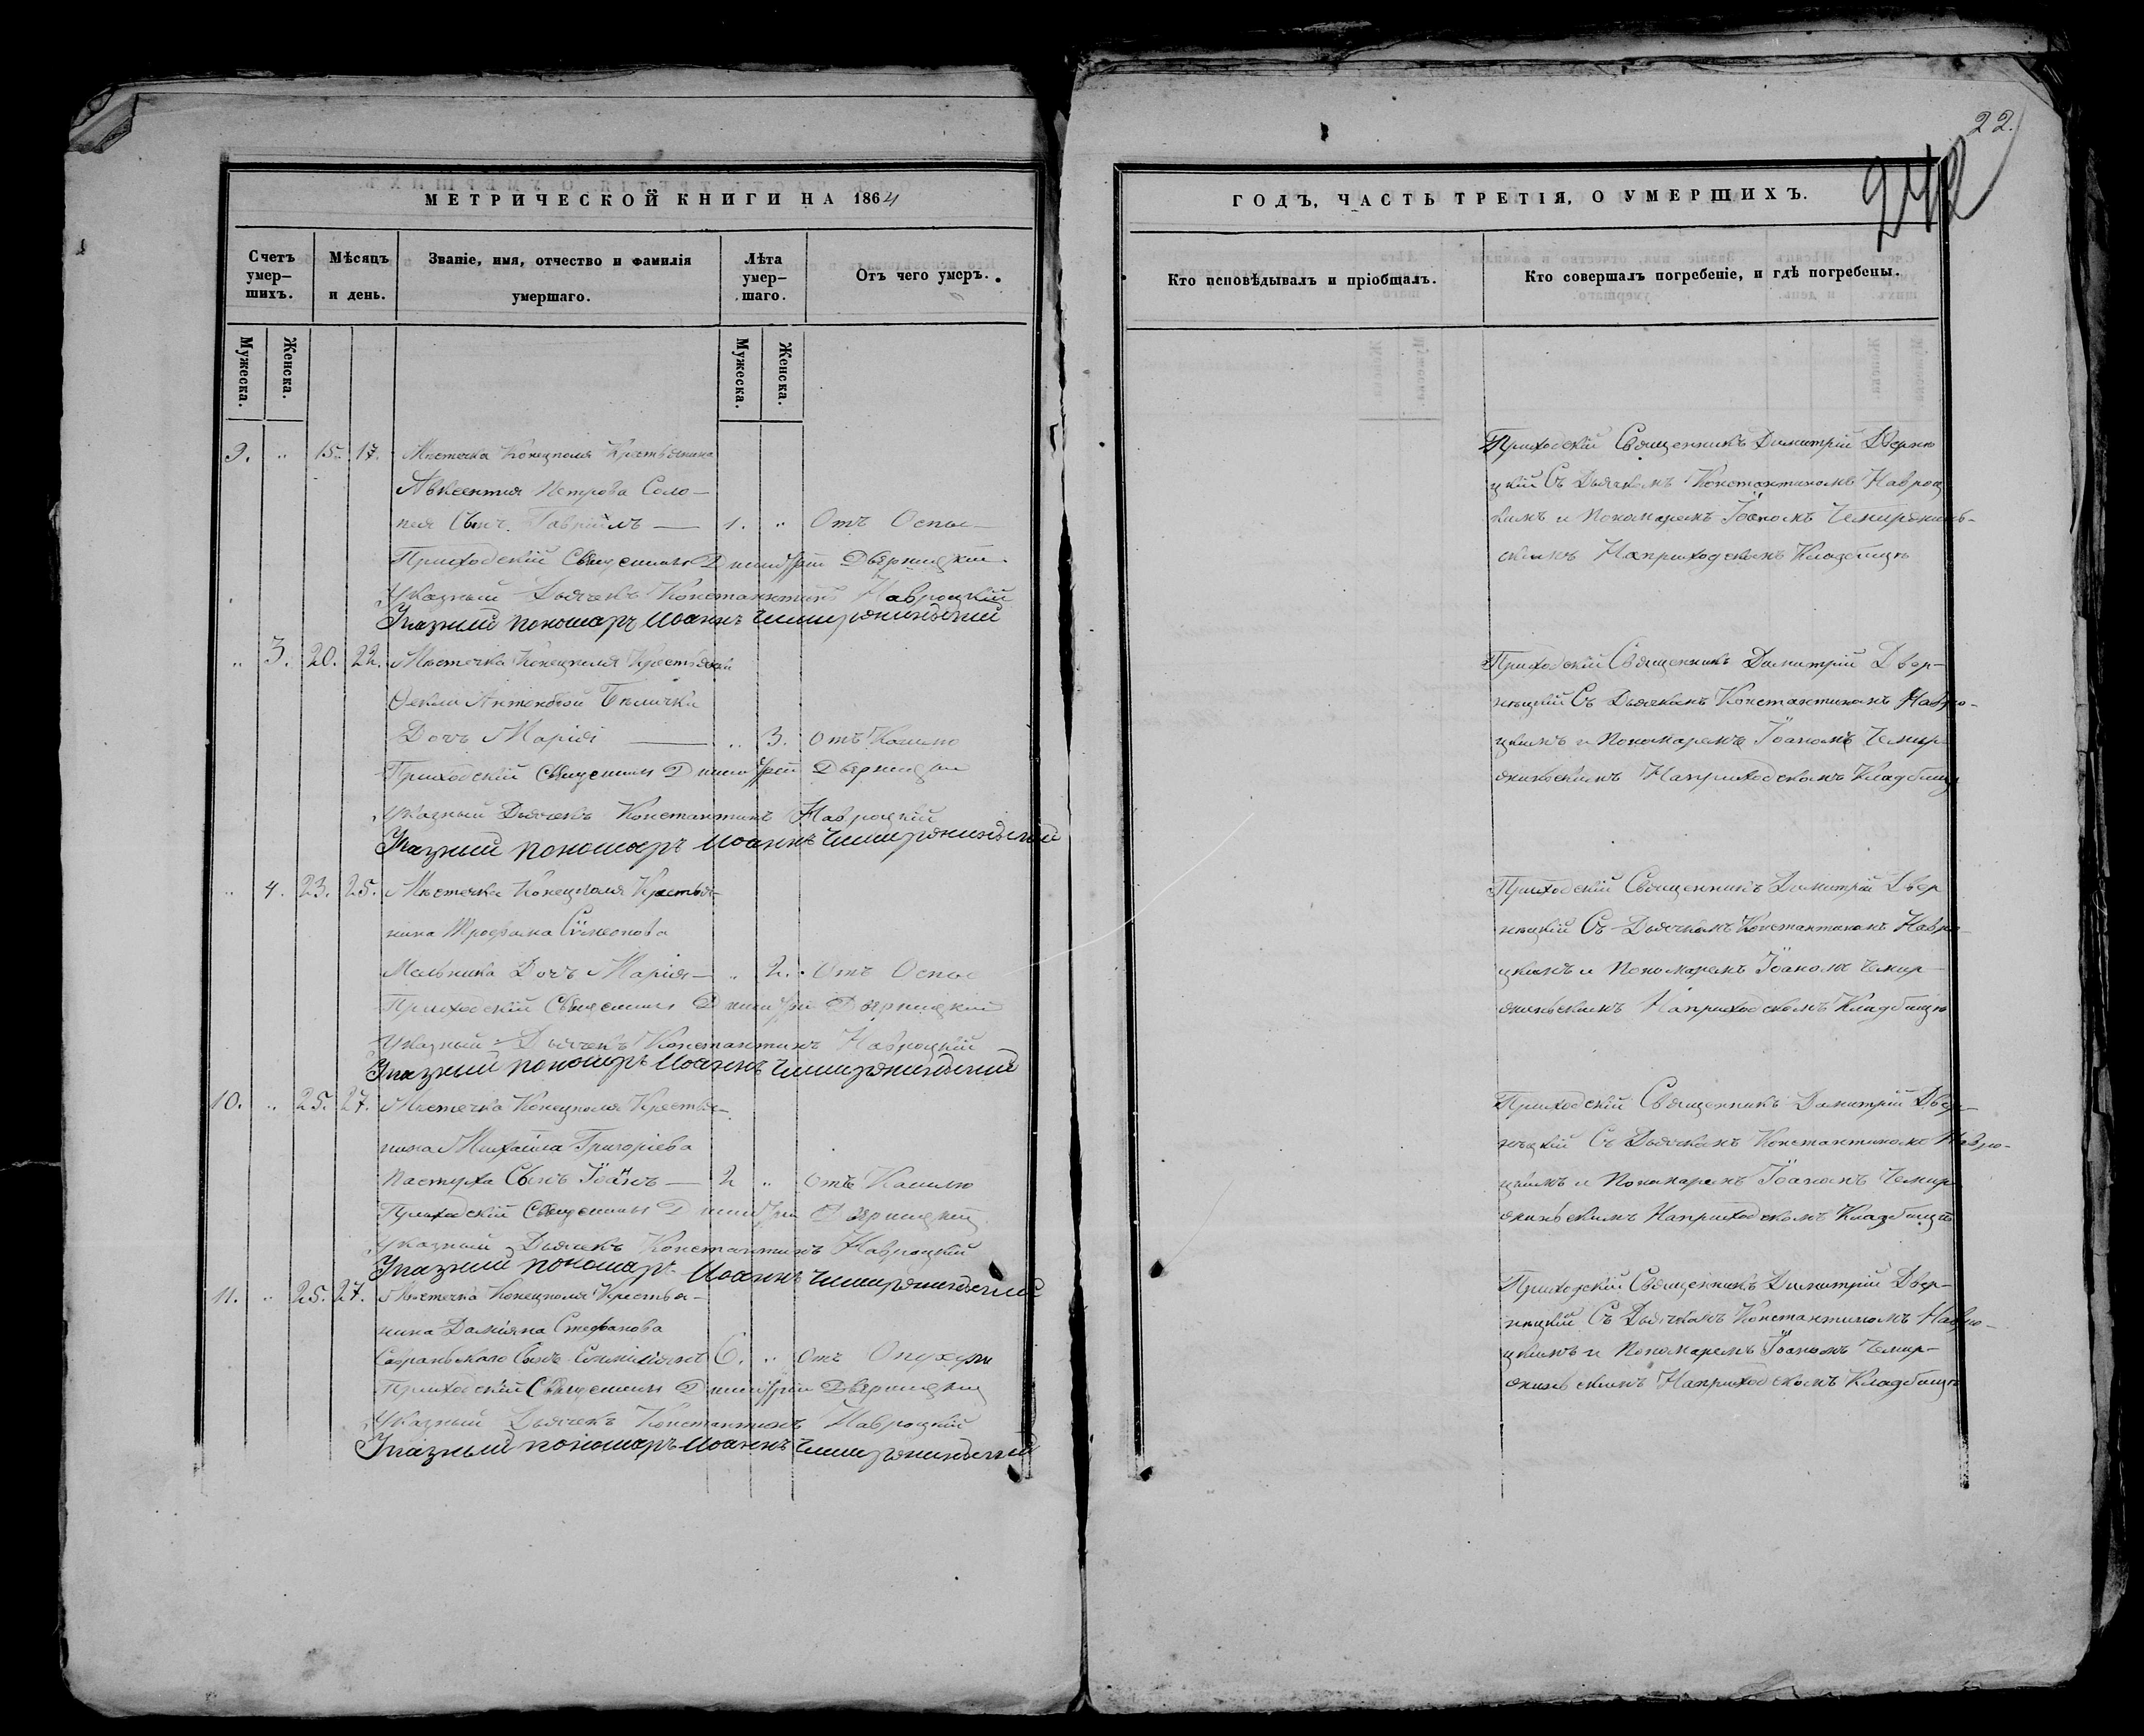 МЕТРИЧЕСКОЙ КНИГИ НА 1864
Счетъ умер- шихъ.
Мѣсяцъ и день.
Званіе, имя, отчество и фамилія умершаго.
Лѣта умер- шаго.
Отъ чего умеръ.
Мужеска.
Женска.
Мужеска.
Женска.
9. " 15. 17. Мѣстечка Конецполя Крестьянина
Авксентія Петрова Соло-
пея Сынъ Гавріилъ — 1. " Отъ Оспы
Приходскій Священникъ Димитрій Дверницкій
Указный Дьячекъ Константинъ Навроцкій
Указный пономарь Иоаннъ
" 3. 20. 22. Мѣстечка Конецполя Крестьянки
Феклы Антоновой
Дочь Марія — " 3. Отъ Кашлю
Приходскій Священникъ Димитрій Дверницкій
Указный Дьячекъ Константинъ Навроцкій
Указный пономарь Иоаннъ
" 4. 23. 25. Мѣстечка Конецполя Крестья-
нина Трофима Сѵмеонова
Мельника Дочь Марія — " 2. Отъ Оспы
Приходскій Священникъ Димитрій Дверницкій
Указный Дьячекъ Константинъ Навроцкій
Указный пономарь Иоаннъ
10. " 25. 27. Мѣстечка Конецполя Крестья-
нина Михаила Григоріева
Пастуха Сынъ Іоанъ — 2 " Отъ Кашлю
Приходскій Священникъ Димитрій Дверницкій
Указный Дьячекъ Константинъ Навроцкій
Указный пономарь Иоаннъ
11. " 25. 27. Мѣстечка Конецполя Крестья-
нина Даміяна Стефанова
Савраньскаго Сынъ 6. " Отъ Опухли
Приходскій Священникъ Димитрій Дверницкій
Указный Дьячекъ Константинъ Навроцкій
Указный пономарь Иоаннъ
22.
ГОДЪ, ЧАСТЬ ТРЕТІЯ, О УМЕРШИХЪ.
Кто исповѣдывалъ и пріобщалъ.
Кто совершалъ погребеніе, и гдѣ погребены.
Приходскій Священникъ Димитрій Дверни
цкій Съ Дьячкомъ Константиномъ Навроц
кимъ и Пономаремъ Іоаномъ
скимъ На приходскомъ Кладбищѣ
Приходскій Священникъ Димитрій Двер-
ницкій Съ Дьячкомъ Константиномъ Навро-
цкимъ и Пономаремъ Іоаномъ
На приходскомъ Кладбищѣ
Приходскій Священникъ Димитрій Двер
ницкій Съ Дьячкомъ Константиномъ Навро-
цкимъ и Пономаремъ Іоаномъ
На приходскомъ Кладбищѣ
Приходскій Священникъ Димитрій Двер-
ницкій Съ Дьячкомъ Константиномъ Навро-
цкимъ и Пономаремъ Іоаномъ
На приходскомъ Кладбищѣ
Приходскій Священникъ Димитрій Двер-
ницкій Съ Дьячкомъ Константиномъ Навро-
цкимъ и Пономаремъ Іоаномъ
На приходскомъ Кладбищѣ